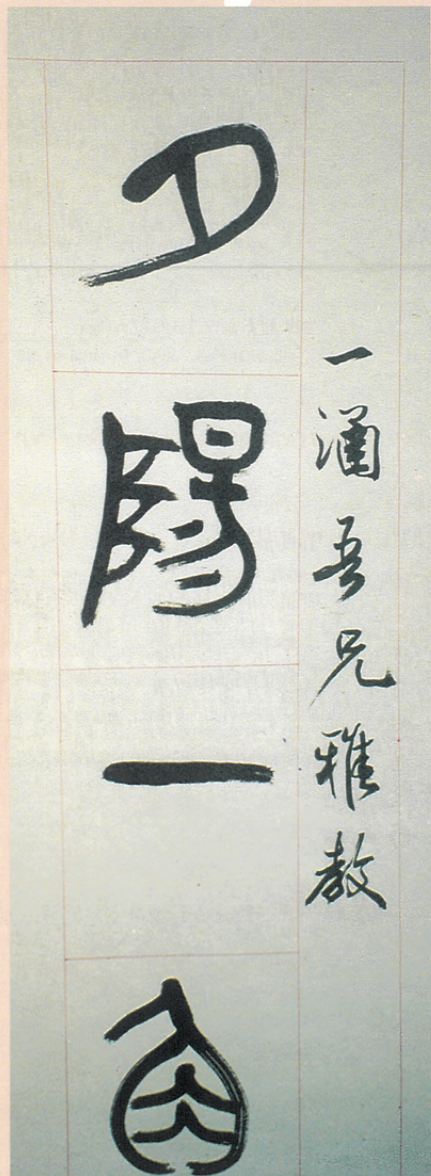 一涵吾兄雅教
夕陽一角